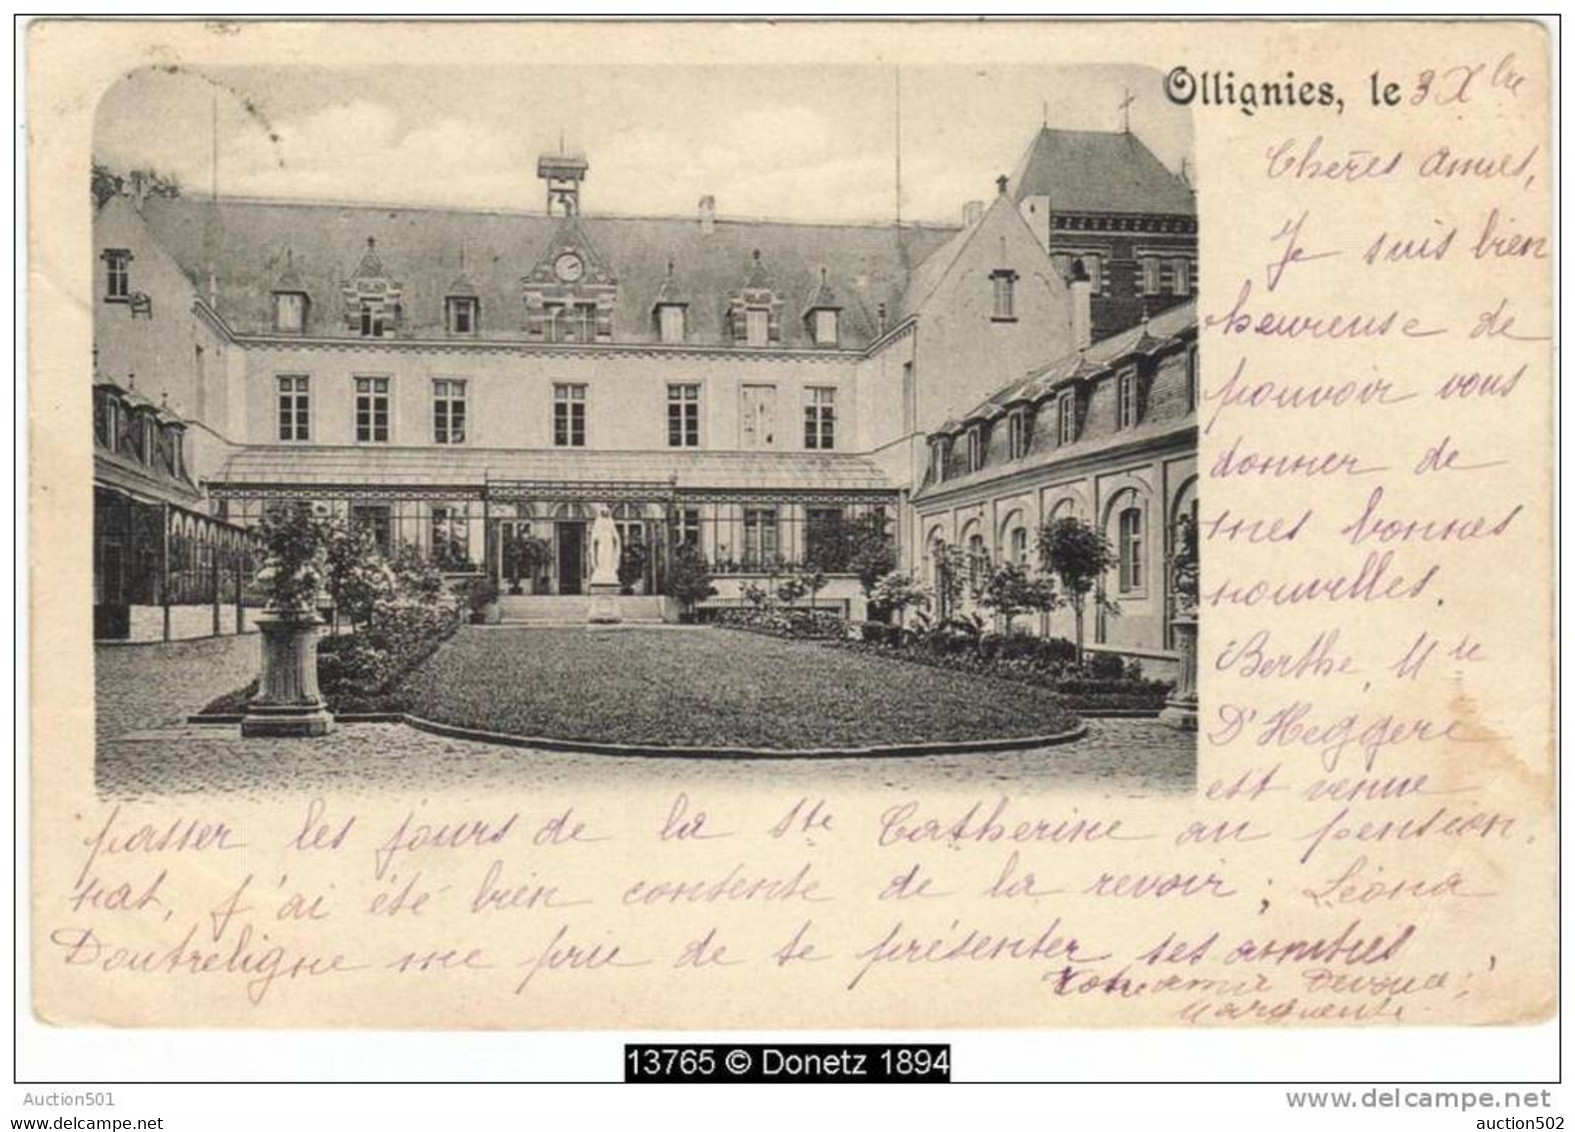 Ollignies, le 3 Xbre
Chères amies,
Je suis bien
heureuse de
pouvoir vous
donner de
mes bonnes
nouvelles.
Berthe, Mlle
D'Heggere
est venue
passer les jours de la Ste Catherine au pension
nat, j'ai été bien contente de la revoir ; Léona
Doutreligne me prie de te présenter ses amitiés,
Votre amie Dévouée,
Marguerite
13765 © Donetz 1894
Auction501
www.delcampe.net
auction501
auction502